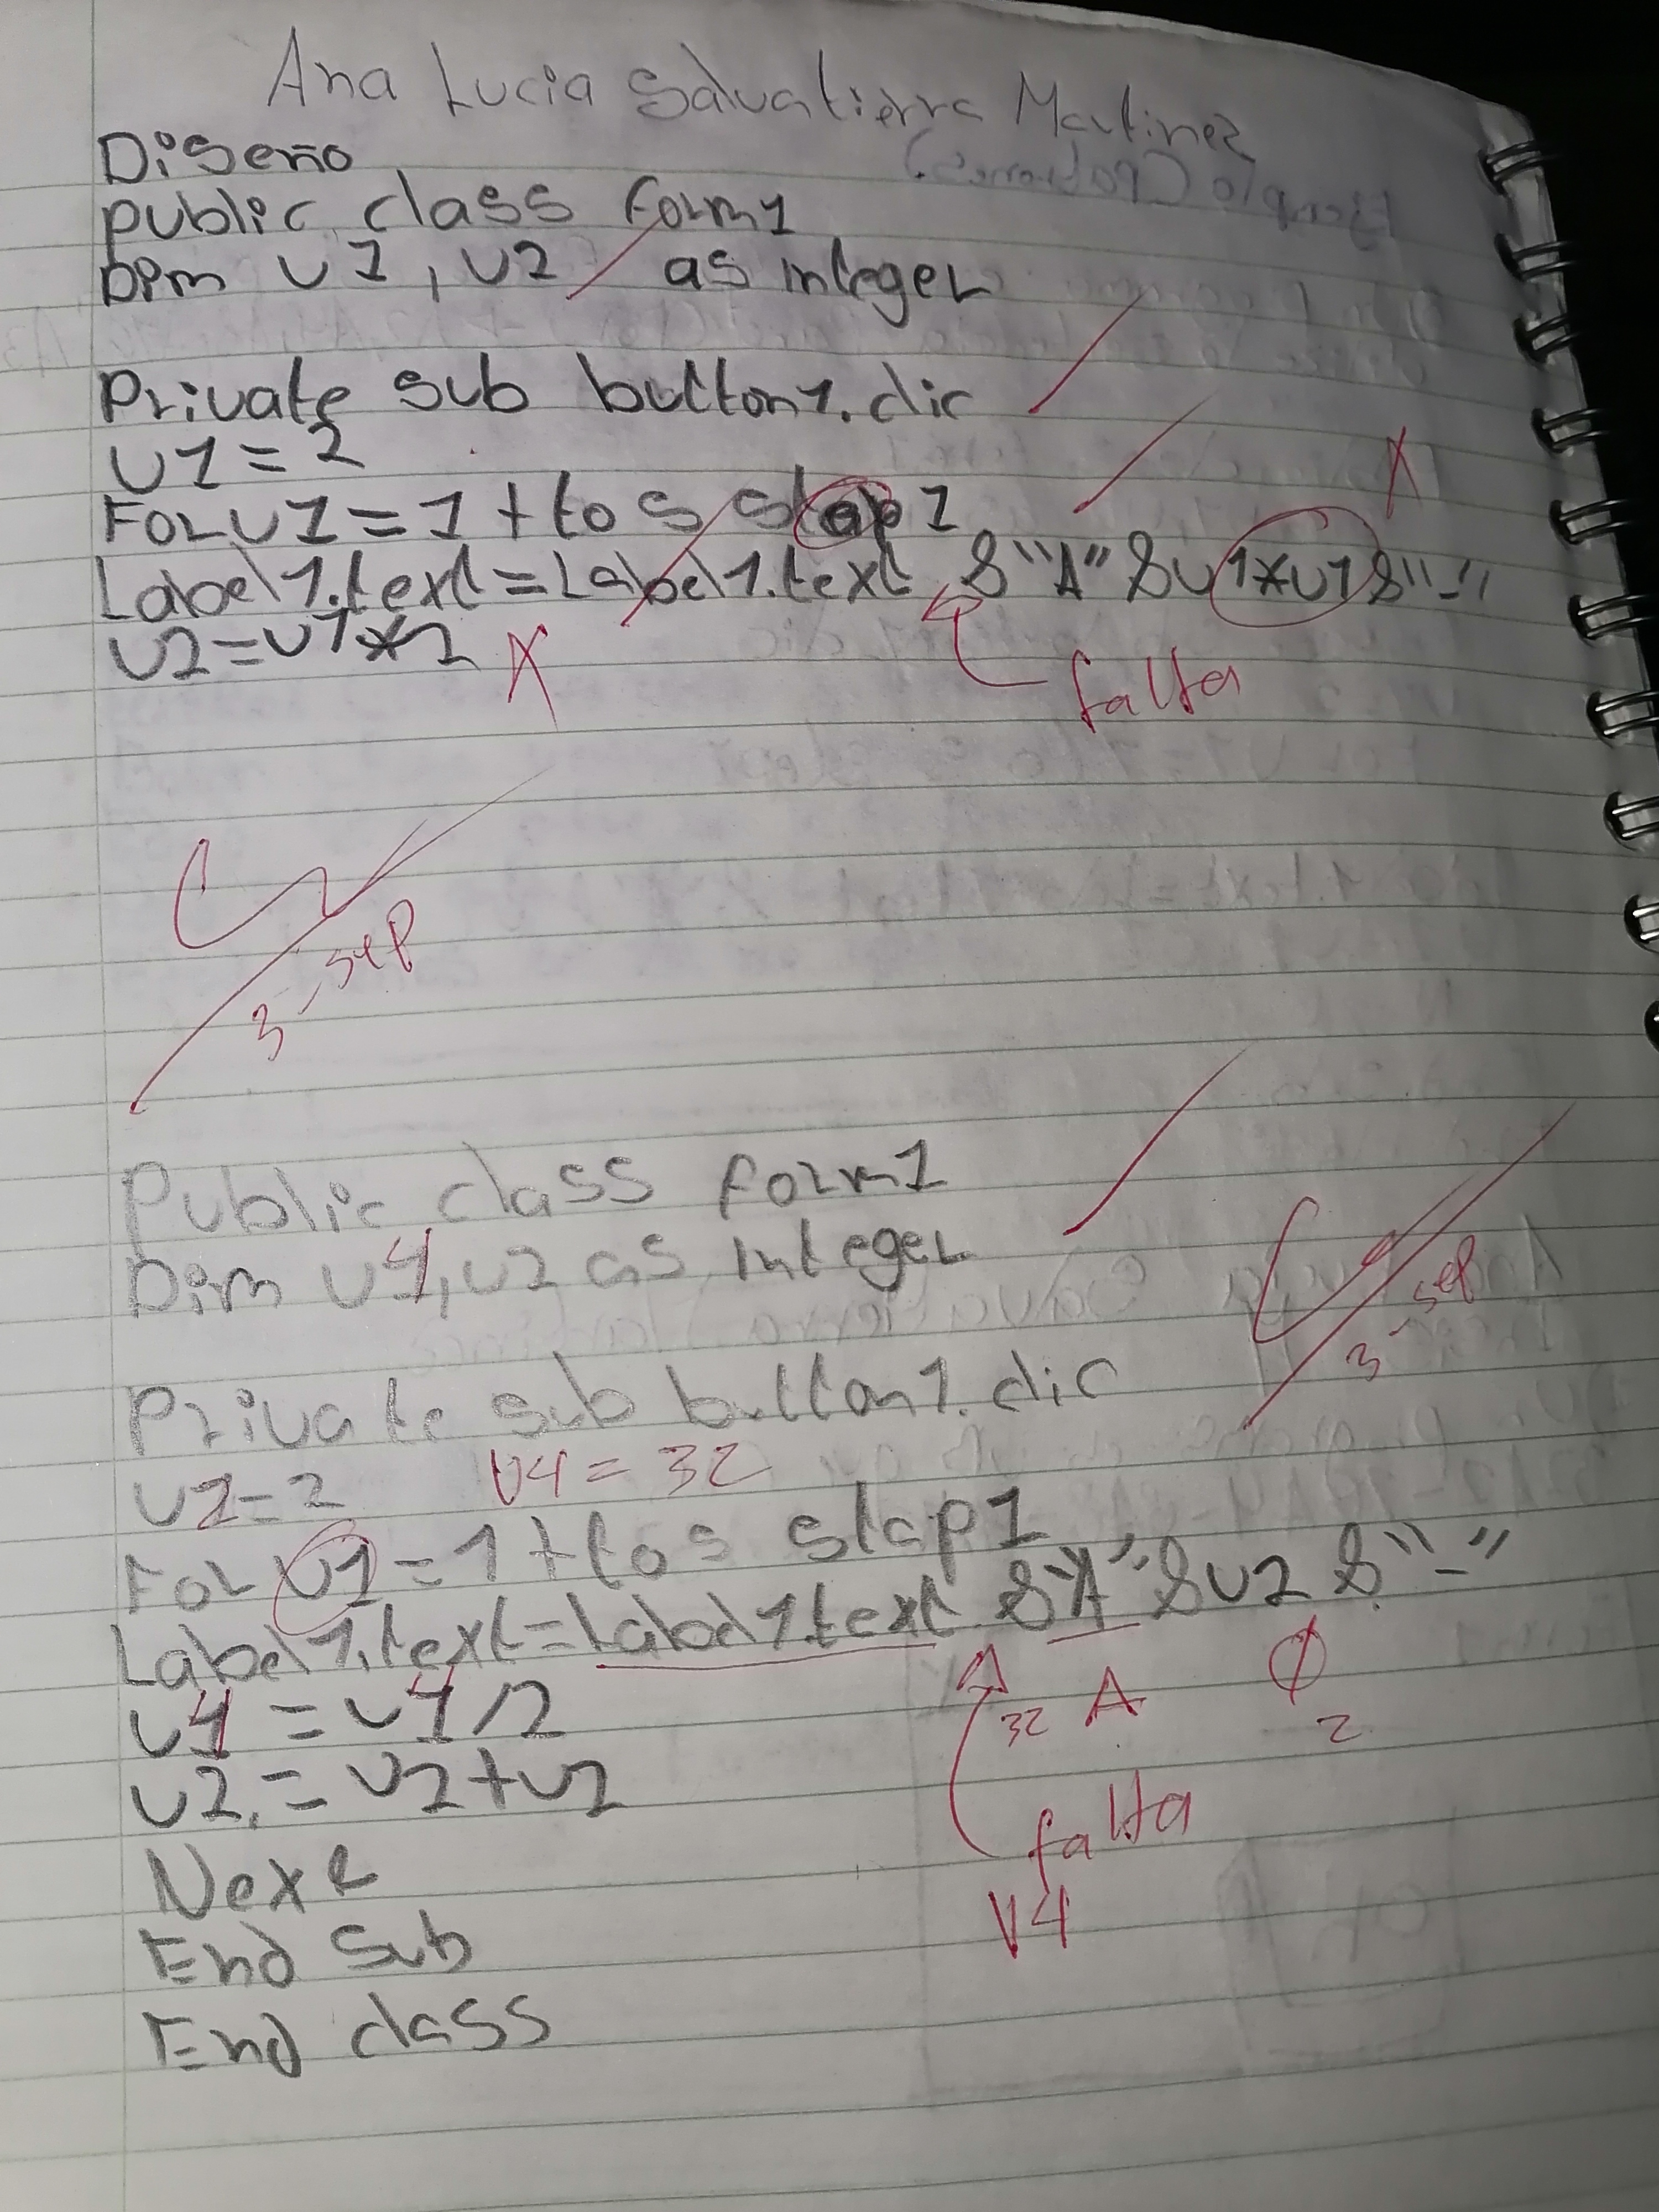 Ana Lucia Salvatierra Martinez
Diseño
public class Form1
Dim v1, v2 as integer
Private sub button1.clic
v1=2
For v1=1 + to 5 step1
Label1.text=Label1.text & "A" & v1*v1 & "-"
v2=v1*2 X
falta
3-sep
Public class Form1
Dim v4, v2 as integer
3-sep
Private sub button1.clic
v2=2 V4=32
For v1=1+to 5 stap1
Label1.text=Label1.text & "A" & v2 & "-"
32 A
2
v4=v4/2
v2=v2+v2
falta
V4
Next
End Sub
End class